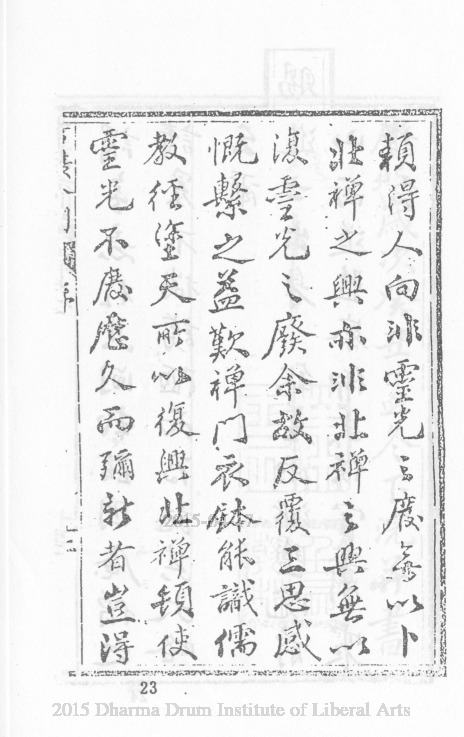 賴得人向非靈光之廢無以卜
北禪之興亦非北禪之興無以
復靈光之廢余故反覆三思感
慨繫之益歎禪門衣鉢能識儒
教徑塗天所以復興北禪頓使
靈光不廢歷久而彌新者豈得
23
2015 Dharma Drum Institute of Liberal Arts